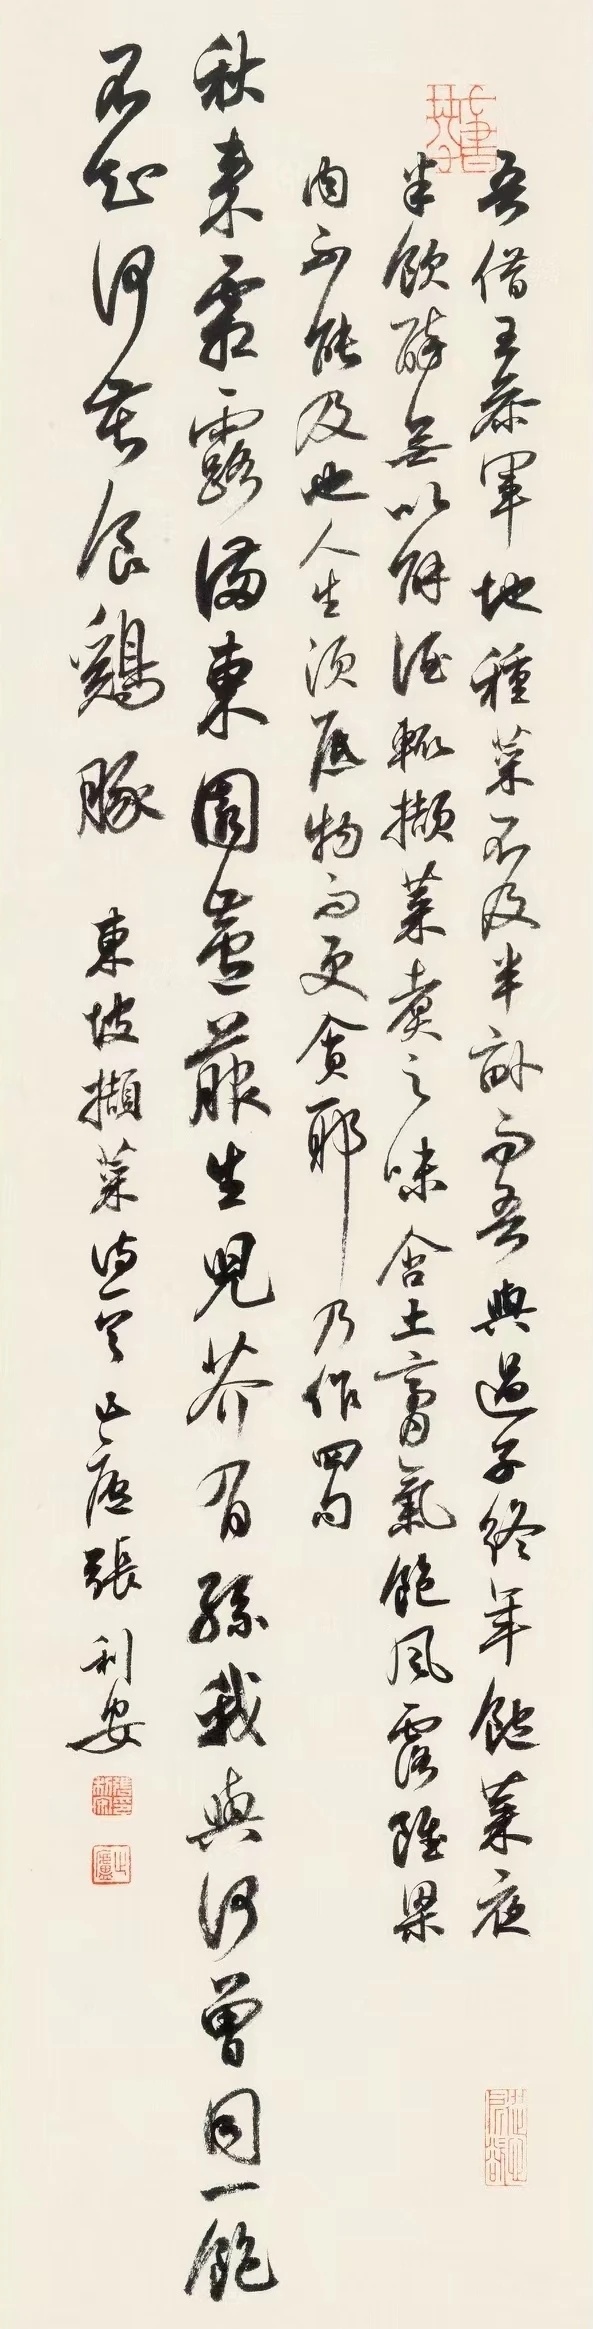 吾借王參軍地種菜不及半畝而吾與過子終年飽菜夜
半飲醉無以解酒輒擷菜煮之味含土膏氣飽風露雖粱
肉不能及也人生須底物而更貪耶 乃作四句
秋來霜露滿東園蘆菔生兒芥有孫我與何曾同一飽
不知何苦食鷄豚 東坡擷菜詩一首 止廬張利安